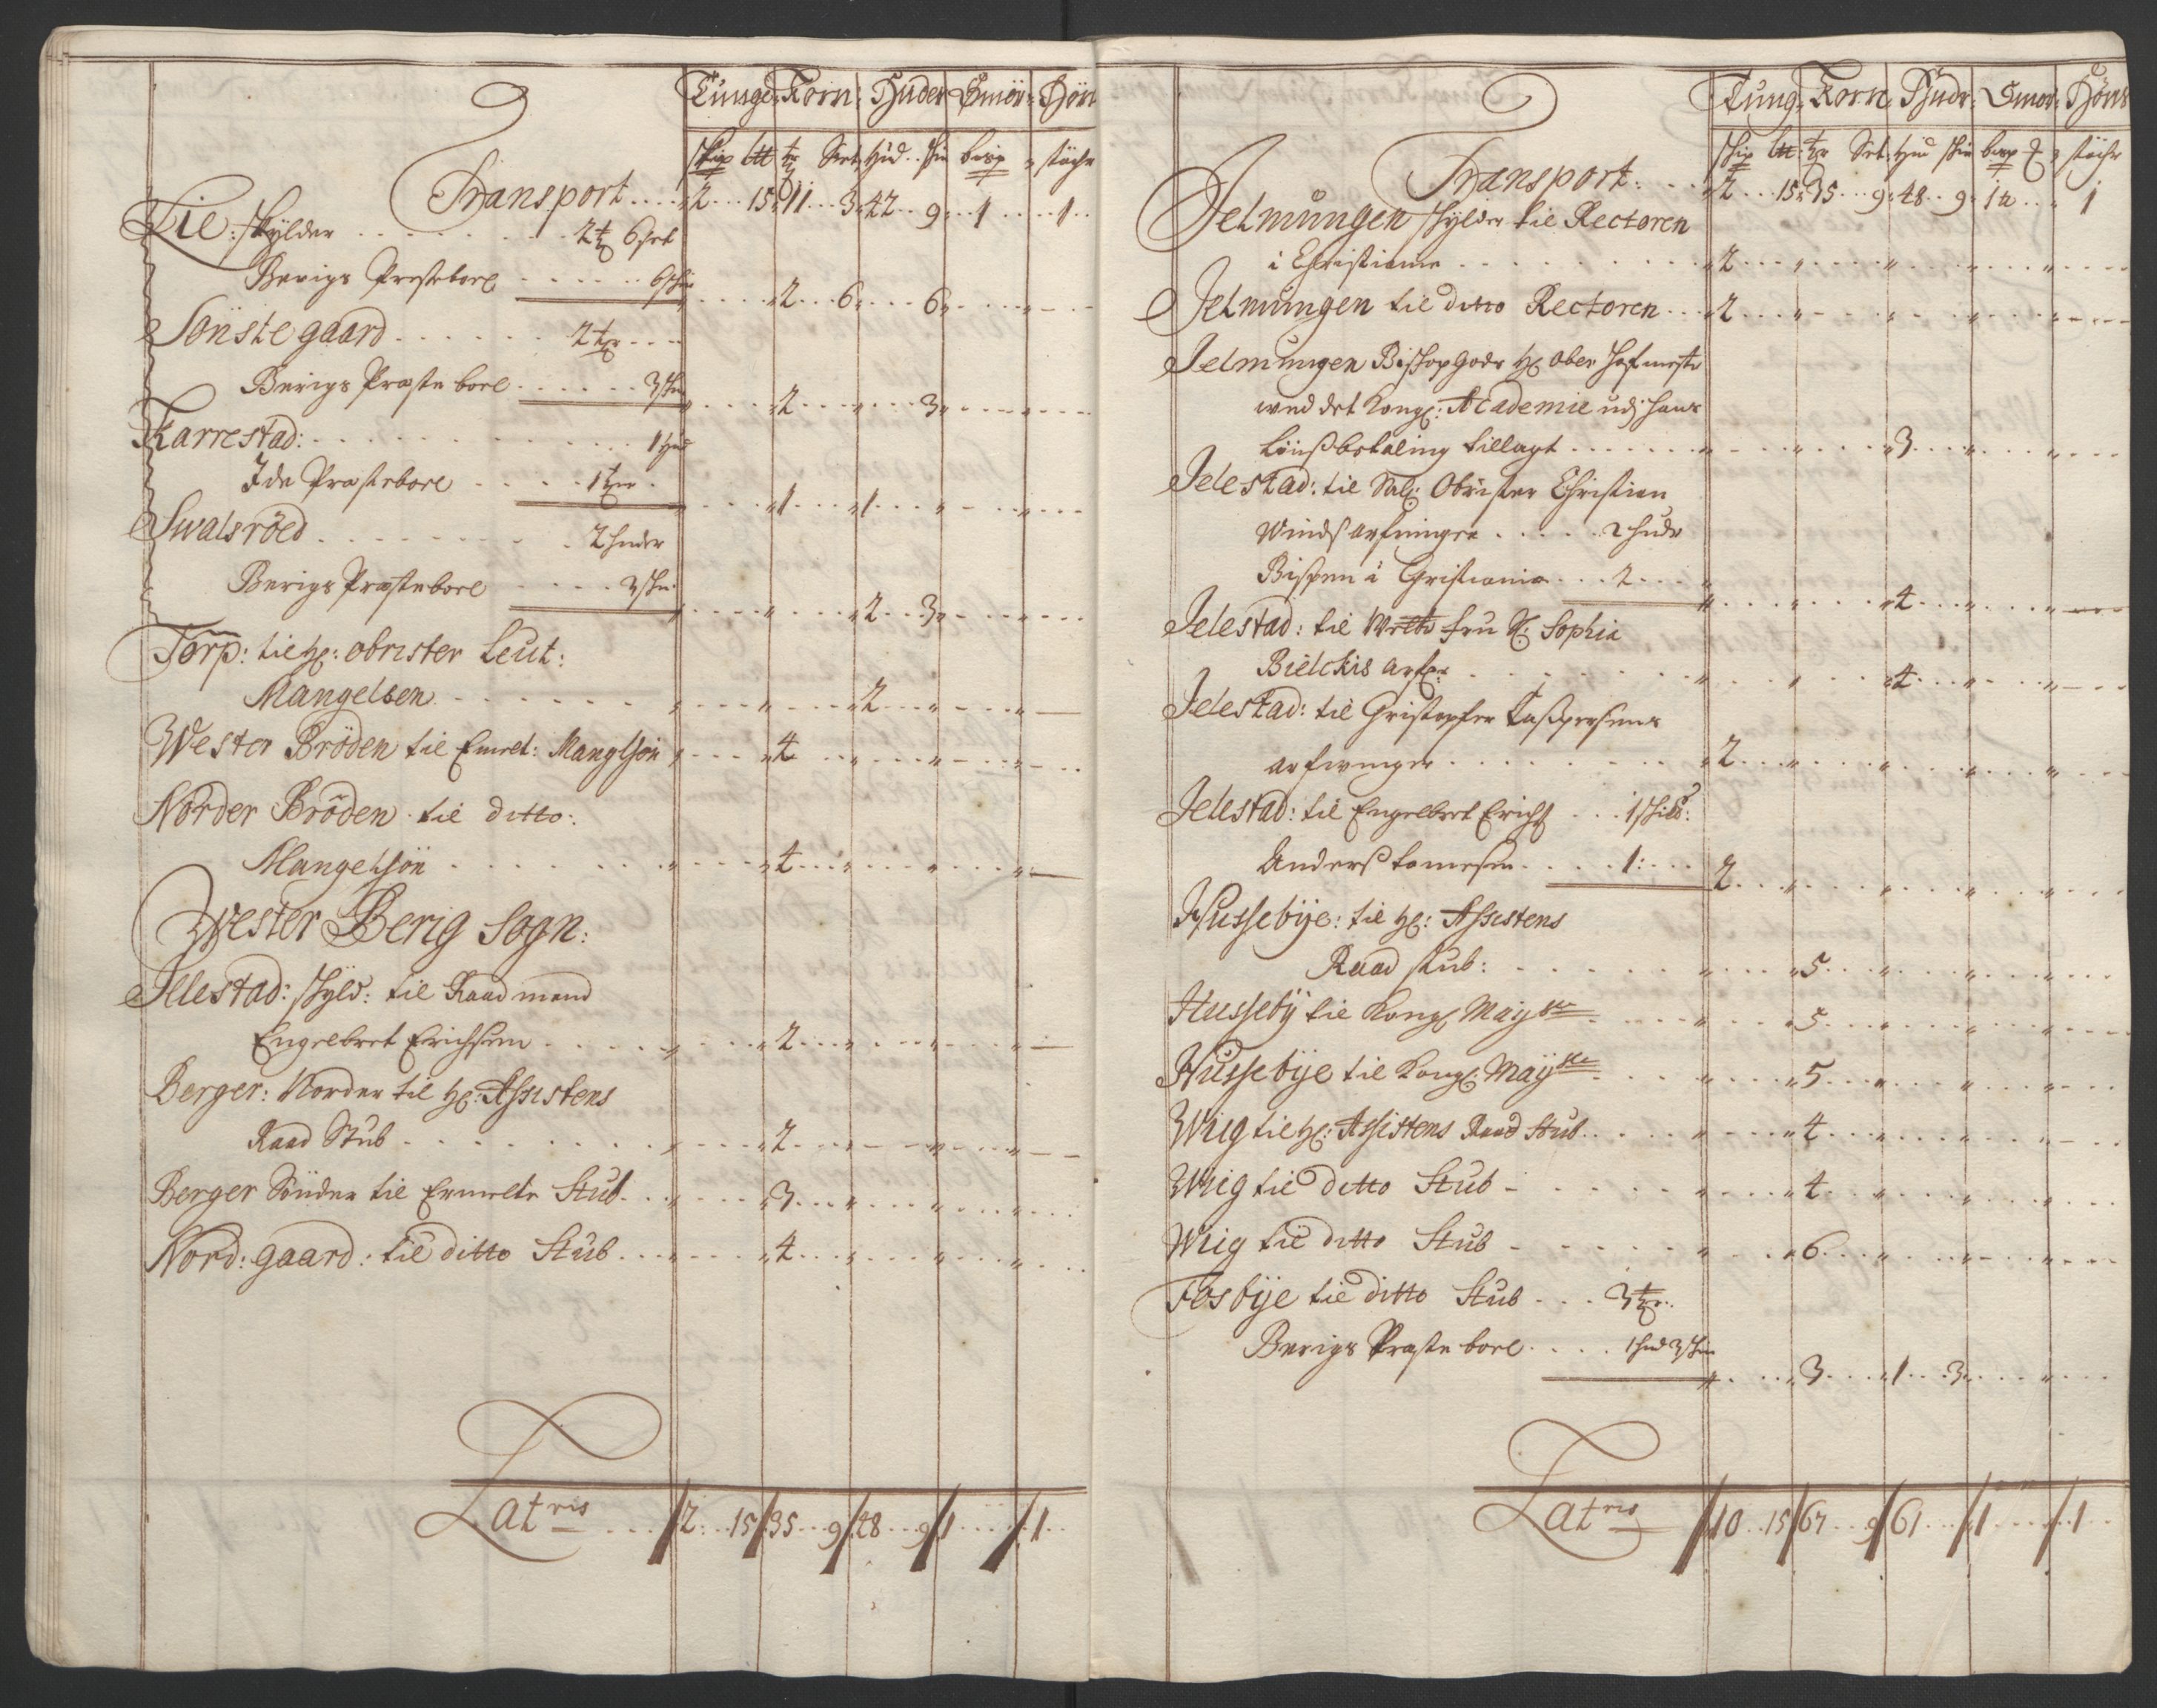 Tunge: Korn: Huder Smör: Höns
skip ltt tr Set: Hud .. skin bisp stöche
Transport .... 2 ... 15 11 ... 3 42 .. 9 .. 1 .... 1 ..
Tie: skylder ........ 2 tr 6 set
Berigs Prestebord ...... 6 skin .... 2 ... 6 .... 6
Sönste gaard ....... 2 tr ...
Berigs Præste bord ...... 3 skin .... 2 .... 3
Karrestad: ............ 1 Hud
Ide Præstebord ..... 1 tr . .... 1 ... 1 ...
Swalsröed ......... 2 huder
Berigs Præstebord ..... 3 skin .... 2 .. 3
Torp: til H: obrister Leut:
Mangelsen ....... 2
Wester Bröden til Ermelt: Manglsön .... 4
Nörder Bröden til ditto:
Mangelsön ........ 4
Wester Berig Sogn:
Jelestad: skyld: til Raadmand
Engelbret Erichsen ...... 2
Berger: Norder til H: Assistens
Raad Stub ........ 2
Berger Sönder til Ermelte Stub ... 3
Nord: gaard: til ditto Stub ... 4
Latris ... 2 .. 15 35 .. 9 48 .. 9 1 .... 1 ..
Tung: Korn: Hudr: Smör: Höns
skip ltt: tr Set: Hud skin bisp stöche
Transport: ... 2 ... 15 35 .. 9 48 .. 9 1 .. 1
Jelmungen skylder til Rectoren
i Christiania ......... 2
Jelmungen til ditto Rectoren .. 2
Jelmungen Bischopgods H: ober Hofmeste
wed det Kongl: Academie udj hans
Lönsbetaling tillagt ....... 3
Jelestad: til Sal: Obrister Christian
Winds arfvinger ..... 2 hudr
Bispen i Christiania ... 2 ... 4
Jelestad: til fru H: Sophia
Bielckis arf: ........ 4
Jelestad: til Christopher Caspersens
arfvinger ......... 2
Jelestad: til Engelbret Erichs ... 1 skild:
Anders tomesen ..... 1: ... 2
Hussebije: til H: Assistens
Raad stub: ...... 5
Husseby til Kongl Mayst ..... 5
Hussebije til Kongl: Mayst .... 5
Wiig til H: Assistens Raad Stub .... 4
Wiig til ditto Stub ...... 4
Wiig til ditto Stub ...... 6
Fosbije til ditto Stub ... 3 tr:
Berigs Præste bord .... 1 hud 3 skin .... 3 ... 1 .. 3
Latris 10 .. 15 67 ... 9 61 ... 1 .... 1 ..